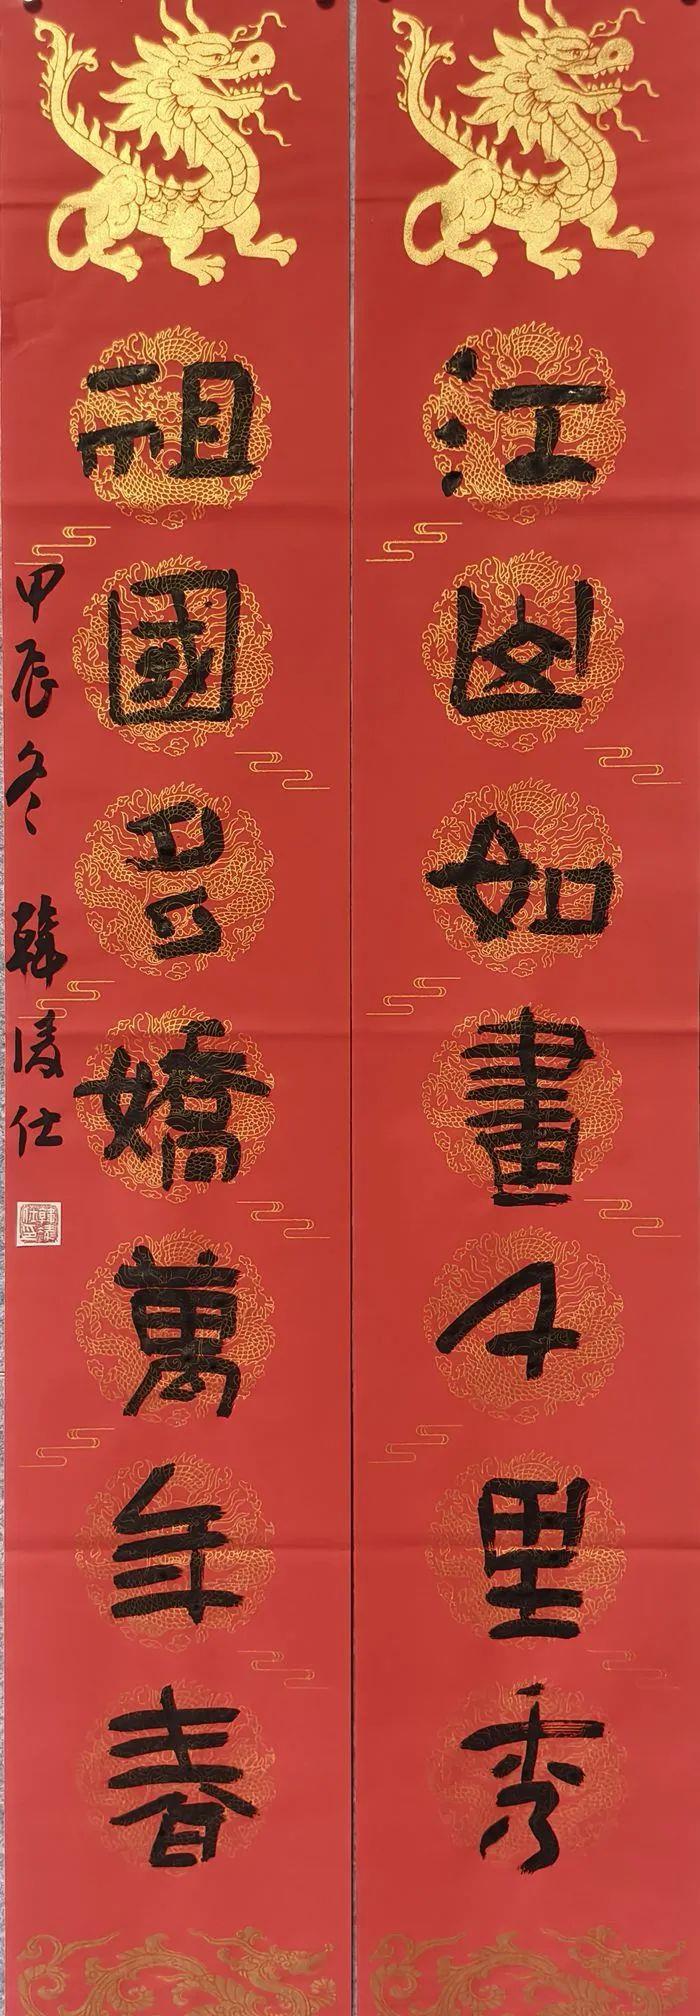 江山如畫千里秀
祖國多嬌萬年春
甲辰冬 韓凌仕